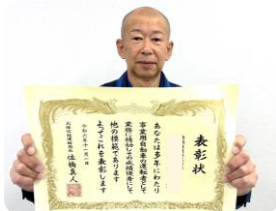 表彰状
あなたは多年にわたり
事業用自動車の運転者として
業務に精励しその成績優秀にして
他の模範であります
よってこれを表彰します
令和六年十一月一日
佐橋真人